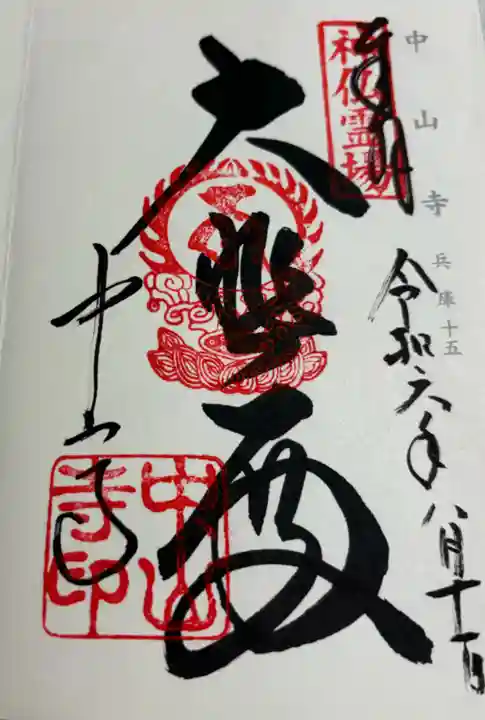 中山寺 兵庫十五
奉拝
神仏霊場
令和六年八月十一日
大悲殿
中山寺
中山寺印